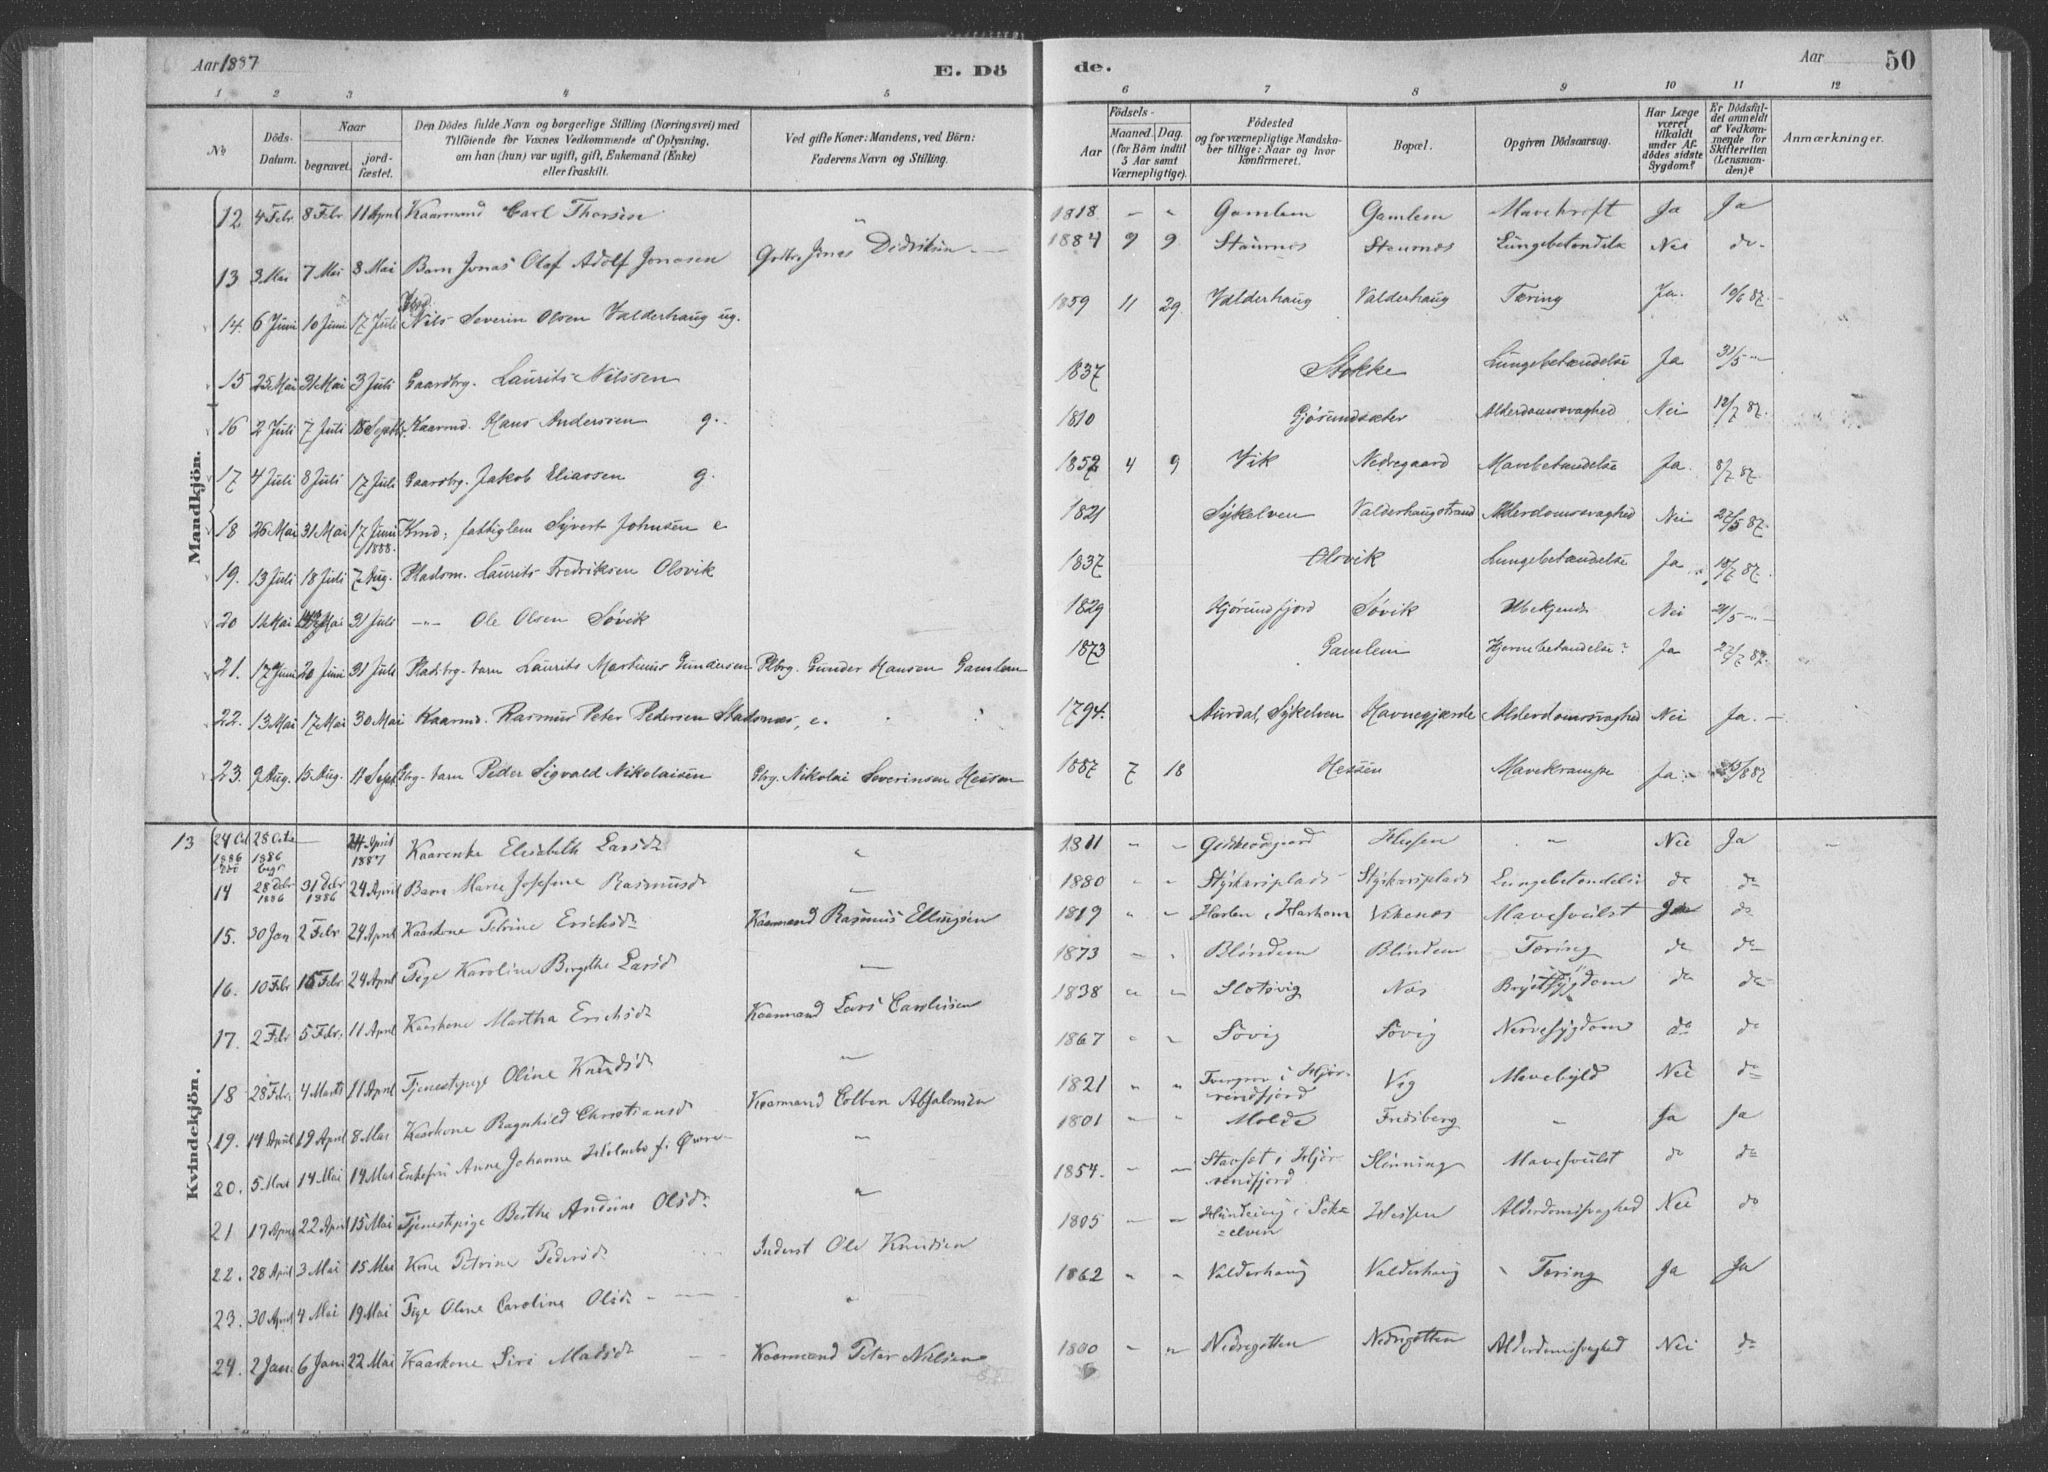 Aar 1887
E. Dö
de.
Aar
50
1 2 3 4 5 6 7 8 9 10 11 12
No
Döds-Datum.
Naar
begravet.
jord-fæstet.
Den Dödes fulde Navn og borgerlige Stilling (Næringsvei) med
Tilföiende for Voxnes Vedkommende af Oplysning,
om han (hun) var ugift, gift, Enkemand (Enke)
eller fraskilt.
Ved gifte Koner: Mandens, ved Börn:
Faderens Navn og Stilling.
Födsels-
Aar
Maaned. Dag.
(for Börn indtil
5 Aar samt
Værnepligtige).
Födested
og for værnepligtige Mandska-
ber tillige: Naar og hvor
konfirmeret.
Bopæl.
Opgiven Dödsaarsag.
Har Læge
været
tilkaldt
under Af-
dödes sidste
Sygdom?
Er Dödsfal-
det anmeldt
af Vedkom-
mende for
Skifteretten
(Lensman-
den)?
Anmærkninger.
Mandkjön.
12 4 Febr 8 Febr 11 April Kaarmand Carl Thorsen " 1818 - " Gamlem Gamlem Mavekreft Ja Ja
13 3 Mai 7 Mai 8 Mai Barn Jonas Olaf Adolf Jonasen Gdbr. Jonas Didriksen 1884 9 9 Staurnes Staurnes Lungebetendelse Nei do
14. 6 Juni 10 Juni 17 Juli Nils Severin Olsen Valderhaug ug. 1859 11 29 Valderhaug Valderhaug Tæring Ja. 10/6 87.
15 25 Mai 31 Mai 3 Juli Gaardbrg. Laurits Nilssen 1837 Stokke Lungebetændelse Ja 31/5 -"-
16 2 Juli 7 Juli 18 Septbr. Kaarmd. Hans Anderssen g. 1810 Gjøsundsæter Alderdomssvaghed Nei 12/7 87.
17 4 Juli 8 Juli 17 Juli Gaardbrg. Jakob Eliassen g. 1852 4 9 Vik Nedregaard Mavebetændelse Ja. 8/7 87.
18 26 Mai 31 Mai 17 Juni 1888. Kmd, fattiglem Syvert Johnsen e 1821 Sykelven Valderhaugstrand Alderdomssvaghed Nei 27/5 87.
19. 13 Juli 18 Juli 7 Aug. Pladsm. Laurits Fredriksen Olsvik 1837 Olsvik Lungebetændelse Ja 18/7 87.
20 16 Mai Mai 31 Juli -"- Ole Olsen Søvik 1829 Hjørundfjord Søvik Ubekjendt Nei 21/5 -"-
21. 17 Juni 20 Juni 31 Juli Pladsbrg. barn Laurits Martinus Gundersen Plbrg. Gunder Hansen Gamlem 1873 Gamlem Hjernebetændelse? Ja 27/7 87.
22. 13 Mai 17 Mai 30 Mai Kaarmd. Rasmus Peter Pedersen Stadsnæs, e. 1794. Aurdal, Sykelven Havnegjærde Alderdomssvaghed Nei Ja.
23. 9 Aug. 15 Aug. 11 Sept. Gbrg. barn Peder Sigvald Nikolaisen Gbrg. Nikolai Severinsen Hessen 1887 7 18 Hessen Mavekrampe Ja /8 87
Kvindekjön.
13 24 Oct 1886 28 Octr 1886 - 24 April 1887 Kaarenke Elisabeth Larsdr " 1811 " " Godskesgaard Hessen " Nei Ja
14 28 Debr 1886 31 Debr 1886 24 April Barn Marie Josefine Rasmusdr - 1880 " " Slyskarsplads Slyskarsplads Lungebetendelse do do
15. 30 Jan 2 Febr 24 April Kaarkone Petrine Erichsdr Kaarmand Rasmus Ellingsen 1819 " " Harlen i Harham Vikenæs Mavesvulst Ja do
16. 10 Febr 15 Febr 24 April Pige Karoline Bergithe Larsd - 1873 " " Blindem Blindem Tæring do do
17. 2 Febr 5 Febr. 11 April Kaarkone Martha Erichsdr Kaarmand Lars Carolussen 1838 " " Slotsvig Næs Brystsygdom do do
18 28 Febr. 4 Marts 11 April Tjenestepige Oline Knudsdr " 1867 " " Søvig Søvig Nervesygdom do do
19. 14 April 19 April 8 Mai Kaarkone Ragnhild Christiansd Kaarmand Colben Absalonsen 1821 " " i Hjørendfjord Vig Mavebyld Nei do
20. 5 Mai 14 Mai 14 Mai Enkefru Anne Johanne Holmebo f. Øwre " 1801 " " Molde Fredsberg " Ja Ja
21 17 April 22 April 15 Mai Tjenestepige Berthe Andrine Olsdr " 1854. " " Stavset i Hjørendfjord Slinning Mavesvulst do do
22. 28 April 3 Mai 15 Mai Kone Petrine Pedersdr Inderst Ole Knudsen 1805 " " Hundeivig i Søkelven Hessen Alderdomssvaghed Nei do
23. 30 April 4 Mai 19 Mai Pige Oline Caroline Olsdr " 1862 " " Valderhaug Valderhaug Tæring Ja Ja
24. 2 Jan. 6 Jan 22 Mai Kaarkone Siri Madsdr Kaarmand Peter Nielsen 1800 " " Nedregotten Nedregotten Alderdomssvaghed Nei do